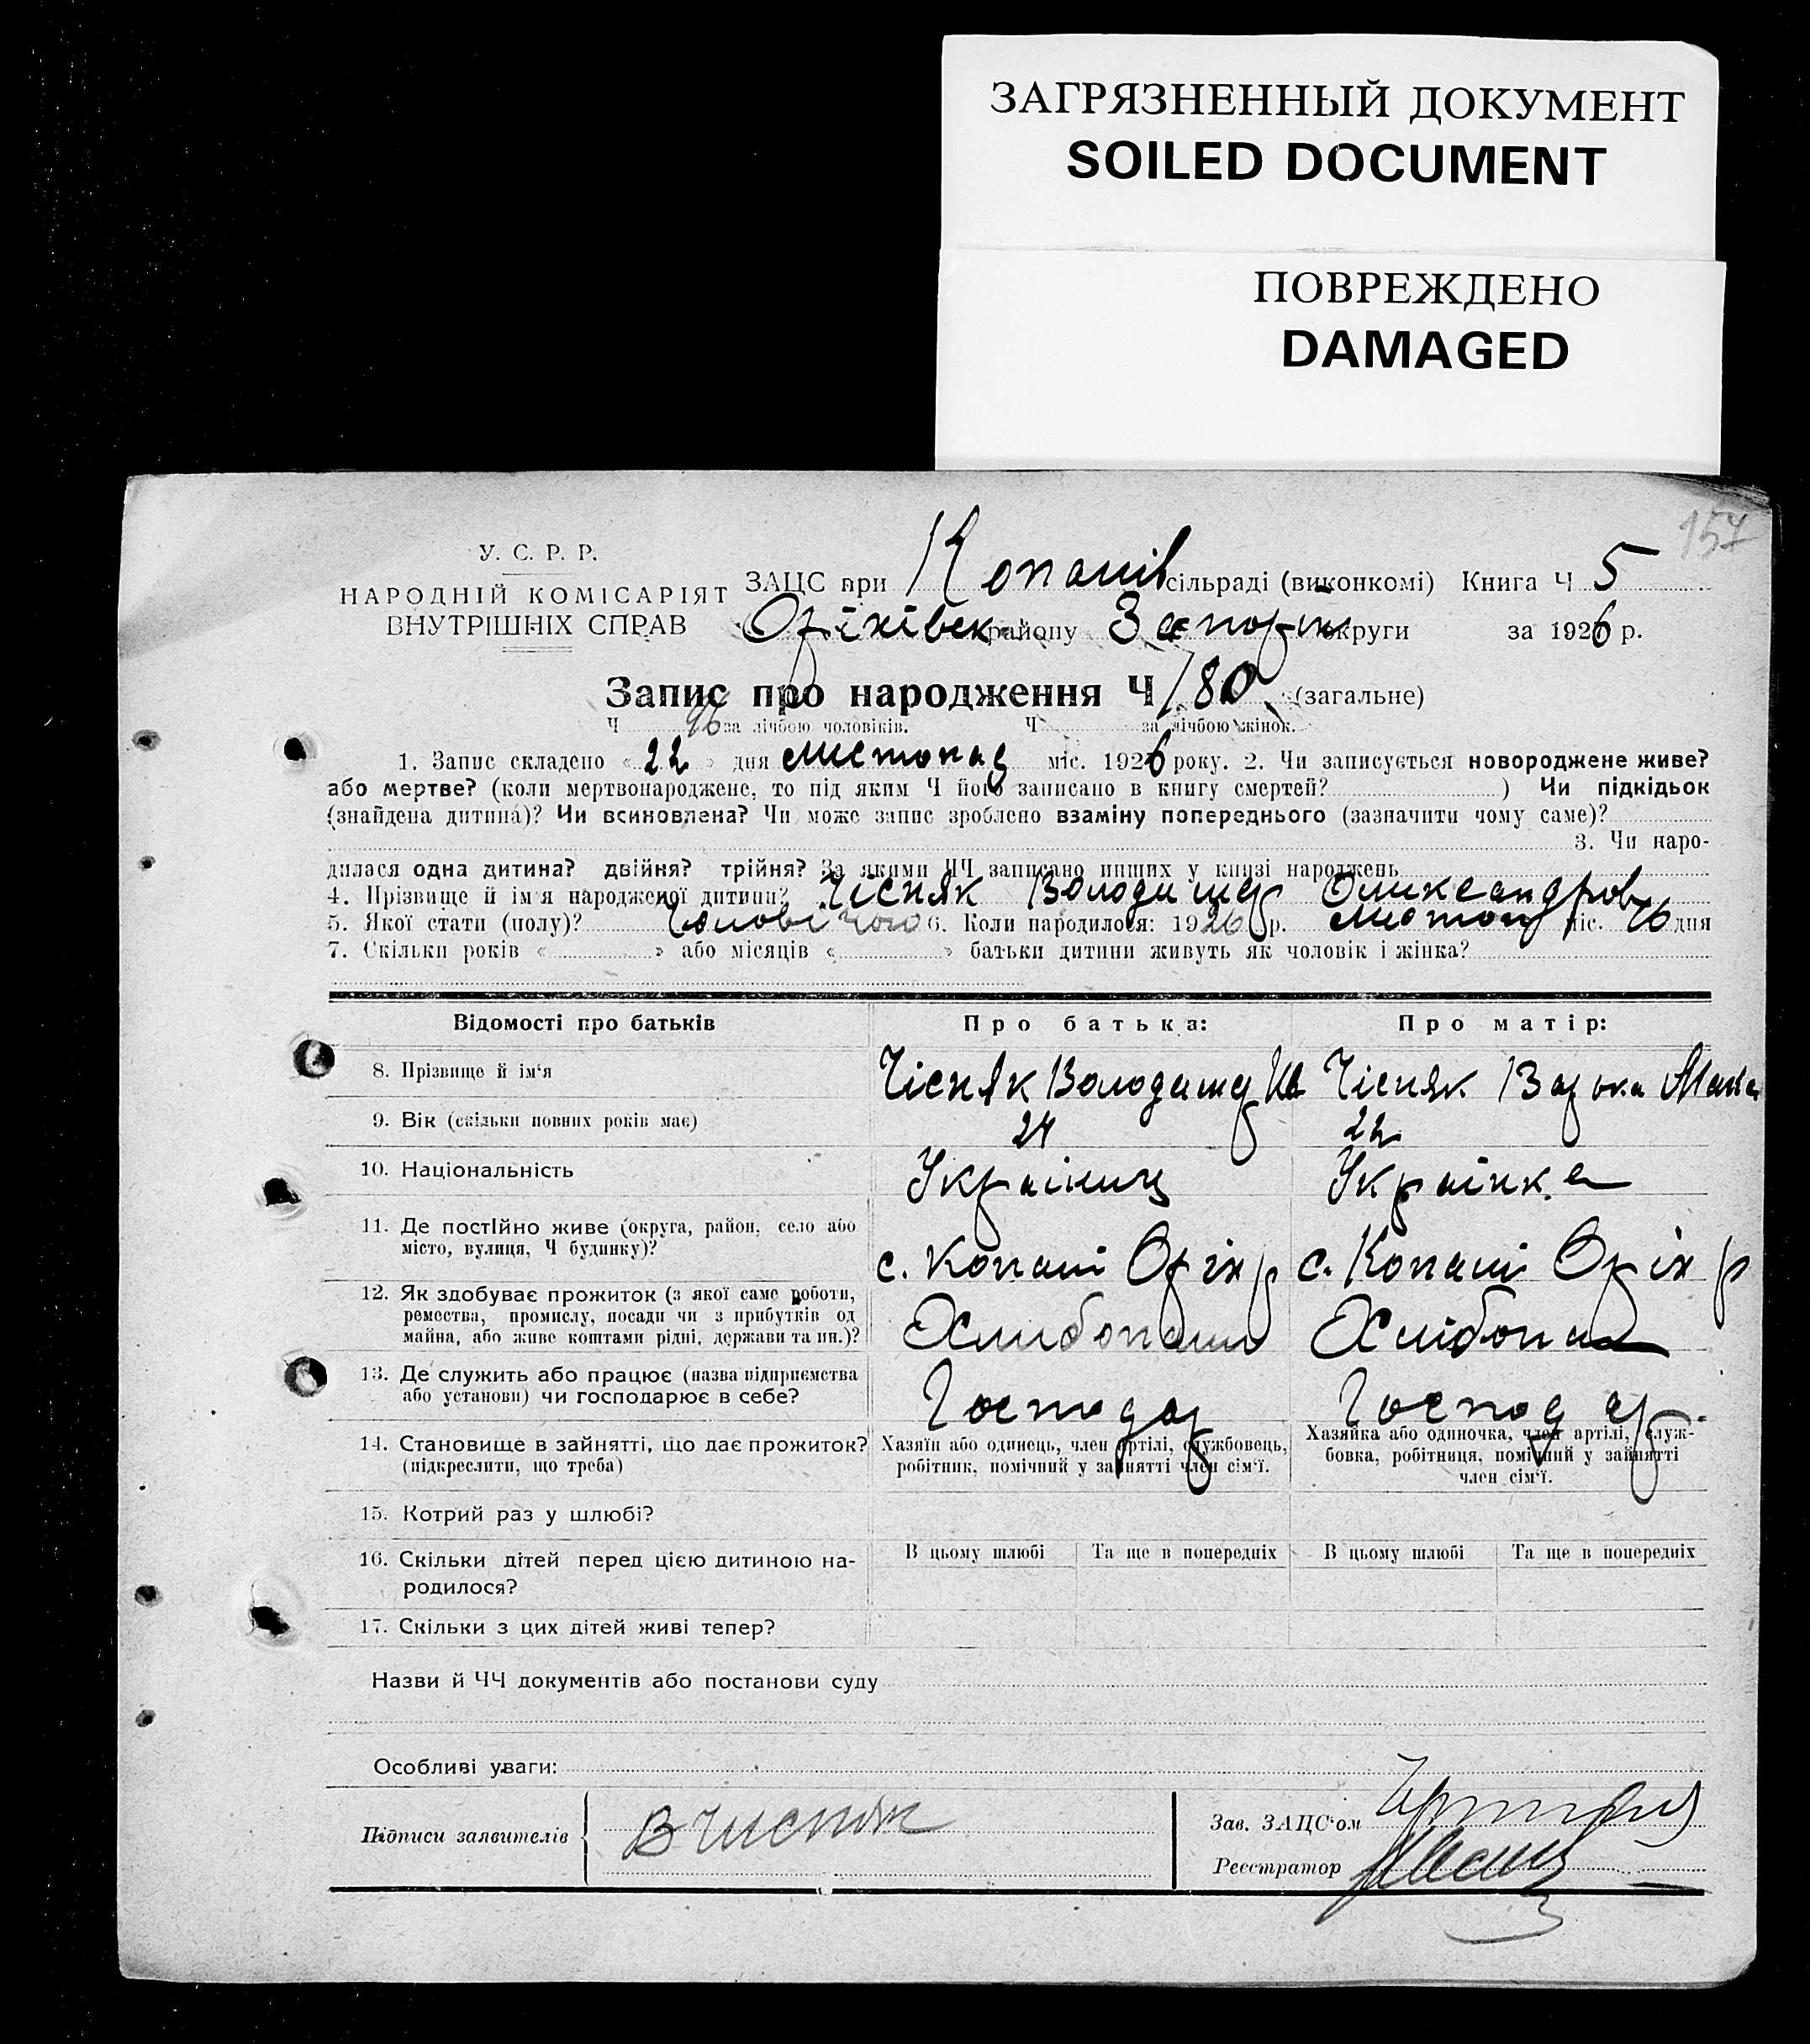 ЗАГРЯЗНЕННЫЙ ДОКУМЕНТ
SOILED DOCUMENT
ПОВРЕЖДЕНО
DAMAGED
157
У. С. Р. Р.
НАРОДНІЙ КОМІСАРІЯТ
ВНУТРІШНІХ СПРАВ
ЗАЦС при Копанів сільраді (виконкомі) Книга Ч 5
Оріхівськ району Запоріж округи за 1926 р.
Запис про народження Ч 180 (загальне)
Ч 96 за лічбою чоловіків. Ч за лічбою жінок.
1. Запис складено « 22 » дня листопад міс. 1926 року. 2. Чи записується новороджене живе?
або мертве? (коли мертвонароджене, то під яким Ч його записано в книгу смертей? ) Чи підкідьок
(знайдена дитина)? Чи всиновлена? Чи може запис зроблено взаміну попереднього (зазначити чому саме)?
3. Чи наро-
дилася одна дитина? двійня? трійня? За якими ЧЧ записано инших у книзі народжень
4. Прізвище й ім'я народженої дитини? Чісняк Володимер Олександров
5. Якої стати (полу)? Чоловічого 6. Коли народилося: 1926 р. листопад міс. 16 дня
7. Скільки років « » або місяців « » батьки дитини живуть як чоловік і жінка?
Відомості про батьків Про батька: Про матір:
8. Прізвище й ім'я Чісняк Володимер Ив Чісняк Варька
9. Вік (скільки повних років має) 24 22
10. Національність Українец Українка
11. Де постійно живе (округа, район, село або
місто, вулиця, Ч будинку)? с. Копані Оріх р с. Копані Оріх р
12. Як здобуває прожиток (з якої саме роботи,
ремества, промислу, посади чи з прибутків од
майна, або живе коштами рідні, держави та ин.)? Хлибопаш Хлібопаш
13. Де служить або працює (назва підприємства
або установи) чи господарює в себе? Господар Господар.
14. Становище в зайнятті, що дає прожиток?
(підкреслити, що треба)
Хазяїн або одинець, член артілі, службовець,
робітник, помічний у зайнятті член сім'ї.
Хазяйка або одиночка, член артілі, служ-
бовка, робітниця, помічний у зайнятті
член сім'ї.
15. Котрий раз у шлюбі?
16. Скільки дітей перед цією дитиною на-
родилося?
В цьому шлюбі Та ще в попередніх В цьому шлюбі Та ще в попередніх
17. Скільки з цих дітей живі тепер?
Назви й ЧЧ документів або постанови суду
Особливі уваги:
Підписи заявителів В Чисняк
Зав. ЗАЦС'ом
Реєстратор